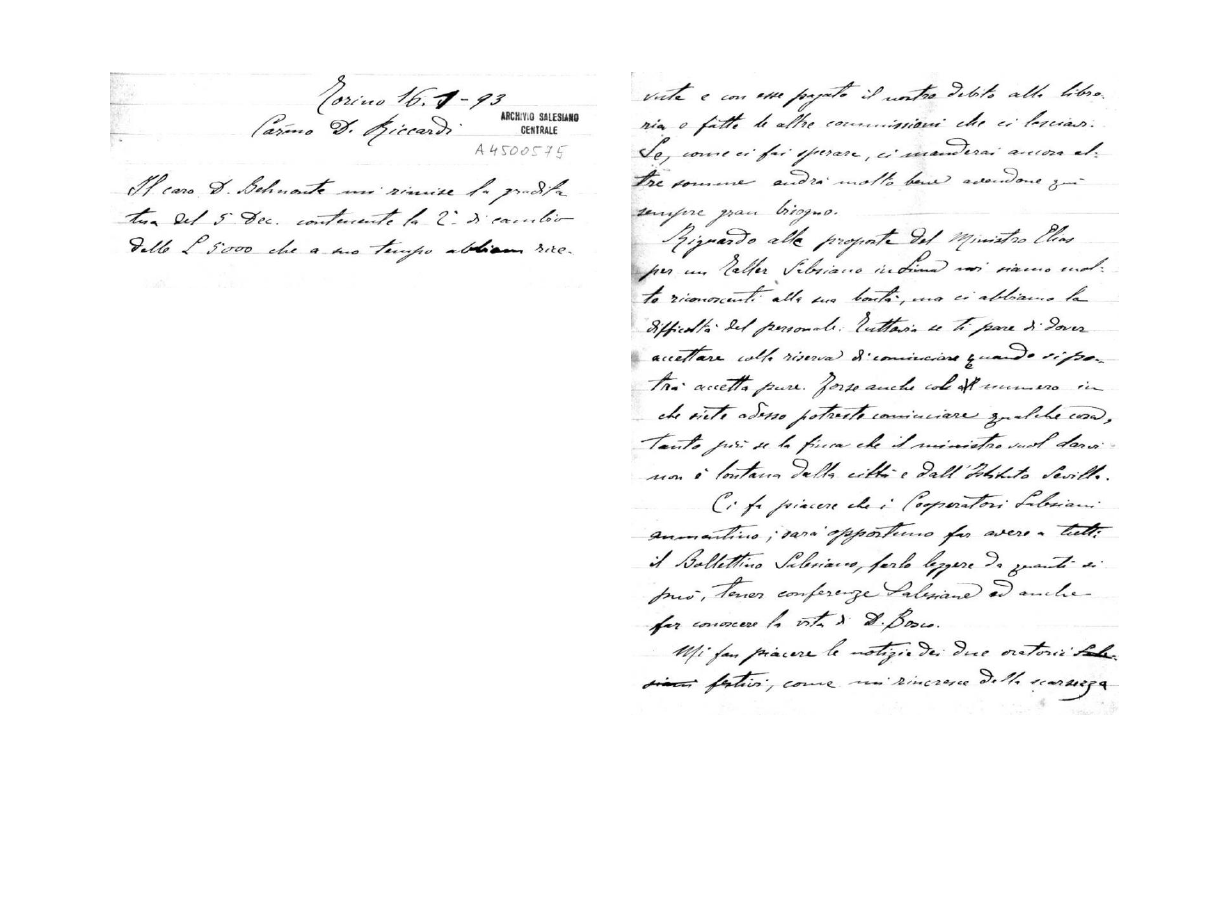 Torino 16. 1 - 93
Carmo D. Riccardi
ARCHIVIO SALESIANO
CENTRALE
A4500575
Il caro D. Belmonte mi rimise la gradita
tua del 5 Dec. contenente la 2ª di cambio
delle L 5000 che a suo tempo abbiam rice-
vute e con esse pagato il nostro debito alla libre-
ria e fatte le altre commissioni che ci lasciasti.
Se, come ci fai sperare, ci manderai ancora al-
tre somme andrà molto bene avendone qui
sempre gran bisogno.
Riguardo alle proposte del Ministro Elias
per un Taller Salesiano in Lima noi siamo mol-
to riconoscenti alla sua bontà, ma ci abbiamo la
difficoltà del personale. Tuttavia se ti pare di dover
accettare colla riserva di cominciare quando si po-
trà accetta pure. Forse anche col numero in
che siete adesso potreste cominciare qualche cosa,
tanto più se la finca che il ministro vuol darvi
non è lontana dalla città e dall'Istituto Sevilla.
Ci fa piacere che i Cooperatori Salesiani
aumentino; sarà opportuno far avere a tutti
il Bollettino Salesiano, farlo leggere da quanti si
può, tener conferenze Salesiane ed anche
far conoscere la vita di D. Bosco.
Mi fan piacere le notizie dei due oratorii Sale-
siani festivi, come mi rincresce della scarsezza